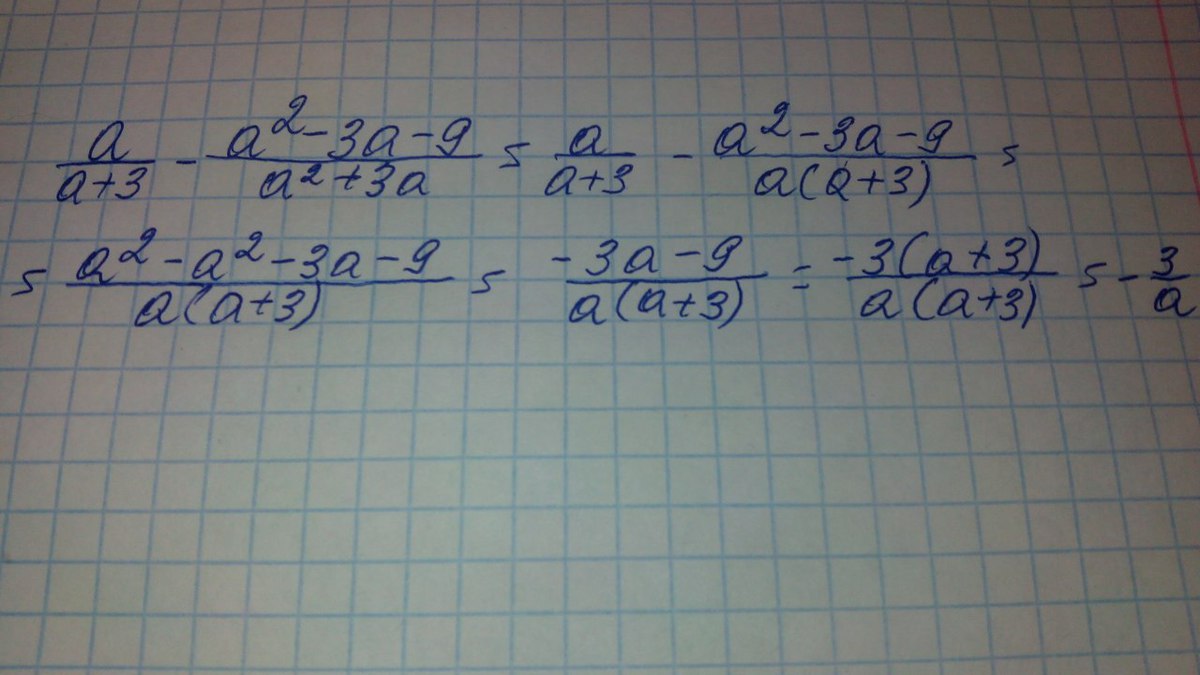 a/(a+3) - (a²-3a-9)/(a²+3a) = a/(a+3) - (a²-3a-9)/(a(a+3)) =
= (a²-a²-3a-9)/(a(a+3)) = (-3a-9)/(a(a+3)) = (-3(a+3))/(a(a+3)) = -3/a